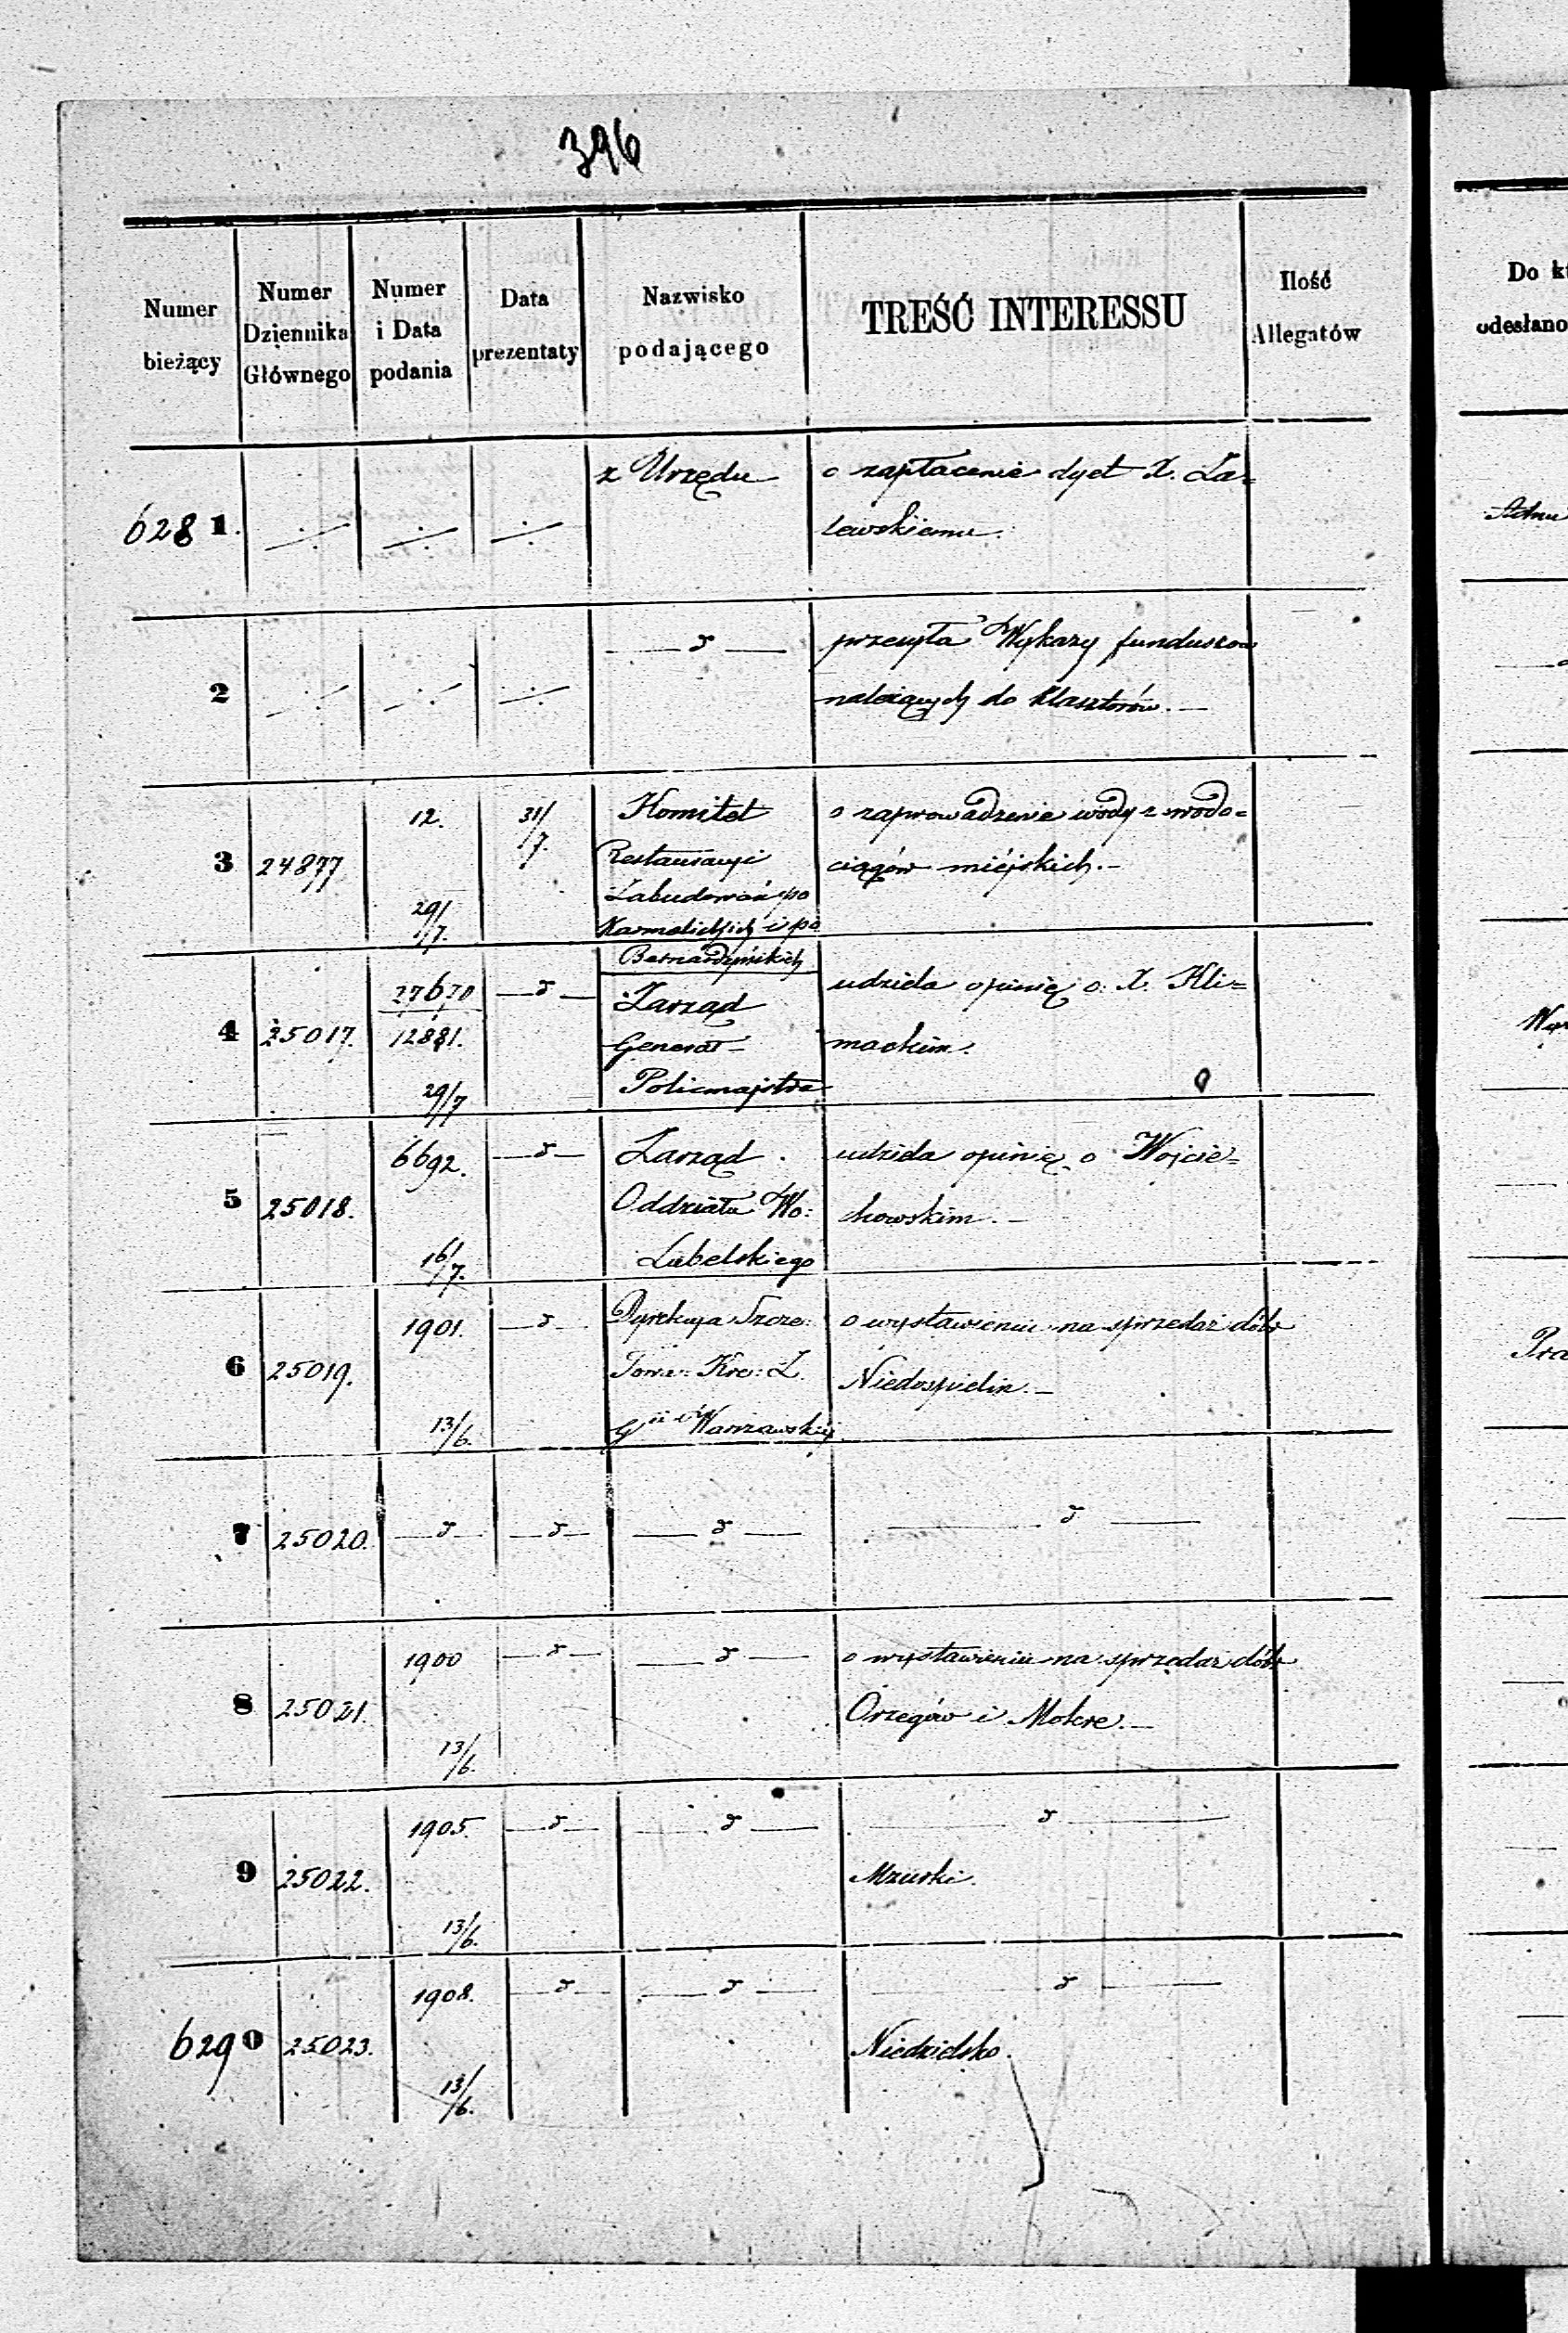 396
Numer bieżący
Numer Dziennika Głównego
Numer i Data podania
Data prezentaty
Nazwisko podającego
TREŚĆ INTERESSU
Ilość Allegatów
Do k
odesłano
6281. ./. ./. ./. z Urzędu o zapłacenie dyet X. Za=
lewskiemu.
2 ./. ./. ./. — d — przesyła Wykazy funduszow
należących do Klasztorów. —
3 24877 12. 29/7. 31/7. Komitet o zaprowadzenie wody z wodo=
Restauracyi ciągów miéjskich. —
Zabudowań po
Karmelickich i po
Bernardyńskich
4 25017. 27670 12881. 29/7 — d — Zarząd udziela opinię o X. Kli=
Generał mackim.
Policmajstra
5 25018. 6692. 16/7. — d — Zarząd udziela opinię o Wojcie=
Oddziału Wo: chowskim. —
Lubelskiego
6 25019. 1901. 13/6. — d — Dyrekcya Szcze: o wystawieniu na sprzedaż dóbr
Towa: Kre: Z. Niedospielin. —
Gii Warszawskiej
7 25020. — d — — d — — d — — d —
8 25021. 1900 13/6. — d — — d — o wystawieniu na sprzedaż dóbr
Orzegów i Mokre. —
9 25022. 1905. 13/6. — d — — d — — d —
Mzurki.
6290 25023. 1908. 13/6. — d — — d — — d —
Niedzielsko.